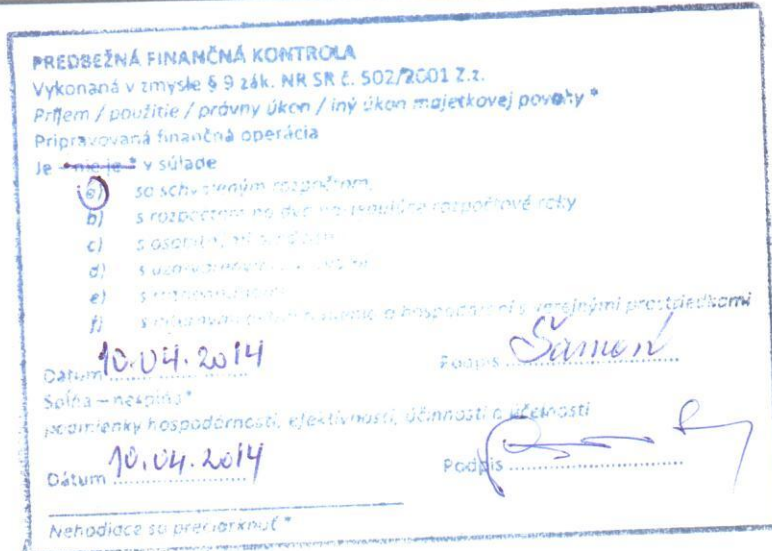 PREDBEŽNÁ FINANČNÁ KONTROLA
Vykonaná v zmysle § 9 zák. NR SR č. 502/2001 Z.z.
Príjem / použitie / právny úkon / iný úkon majetkovej povahy *
Pripravovaná finančná operácia
Je – nie je * v súlade
a) so schváleným rozpočtom,
b) s rozpočtom na dva nasledujúce rozpočtové roky
c) s
d) s
e) s
f) s o hospodárení s verejnými prostriedkami
Dátum 10.04.2014 Podpis Šamon
Spĺňa – nespĺňa*
podmienky hospodárnosti, efektívnosti, účinnosti a účelnosti
Dátum 10.04.2014 Podpis
Nehodiace sa prečiarknuť *